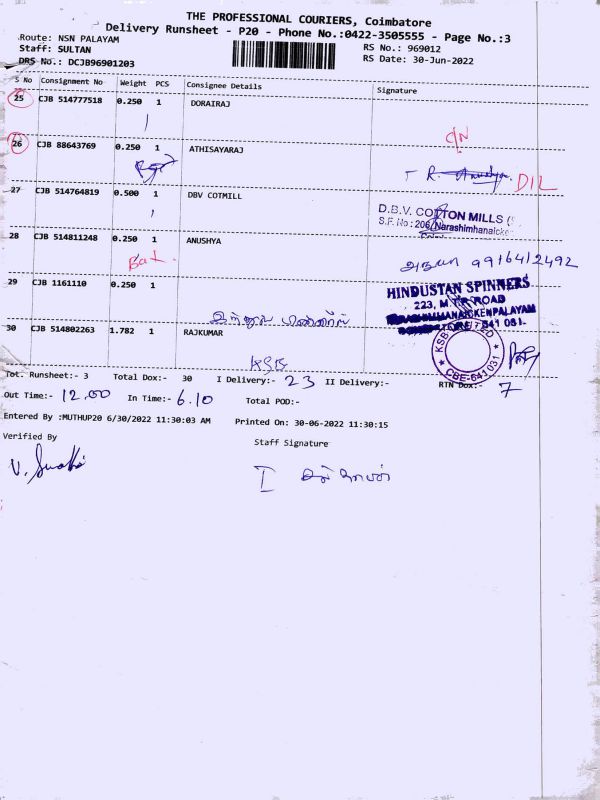 THE PROFESSIONAL COURIERS, Coimbatore
Delivery Runsheet - P20 - Phone No.:0422-3505555 - Page No.:3
Route: NSN PALAYAM
RS No.: 969012
Staff: SULTAN
RS Date: 30-Jun-2022
DRS No.: DCJB96901203
S No Consignment No Weight PCS Consignee Details Signature
25 CJB 514777518 0.250 1 DORAIRAJ
C/N
26 CJB 88643769 0.250 1 ATHISAYARAJ
D/L
27 CJB 514764819 0.500 1 DBV COTMILL
D.B.V. COTTON MILLS
S.F. No : 206, Narashimhanaicke
28 CJB 514811248 0.250 1 ANUSHYA
9916412492
29 CJB 1161110 0.250 1
HINDUSTAN SPINNERS
223, ROAD
30 CJB 514802263 1.782 1 RAJKUMAR
KSB LIMITED
CBE-641 031
KSB
Tot. Runsheet:- 3 Total Dox:- 30 I Delivery:- 23 II Delivery:- RTN Dox:- 7
Out Time:- 12.00 In Time:- 6.10 Total POD:-
Entered By :MUTHUP20 6/30/2022 11:30:03 AM Printed On: 30-06-2022 11:30:15
Verified By
Staff Signature